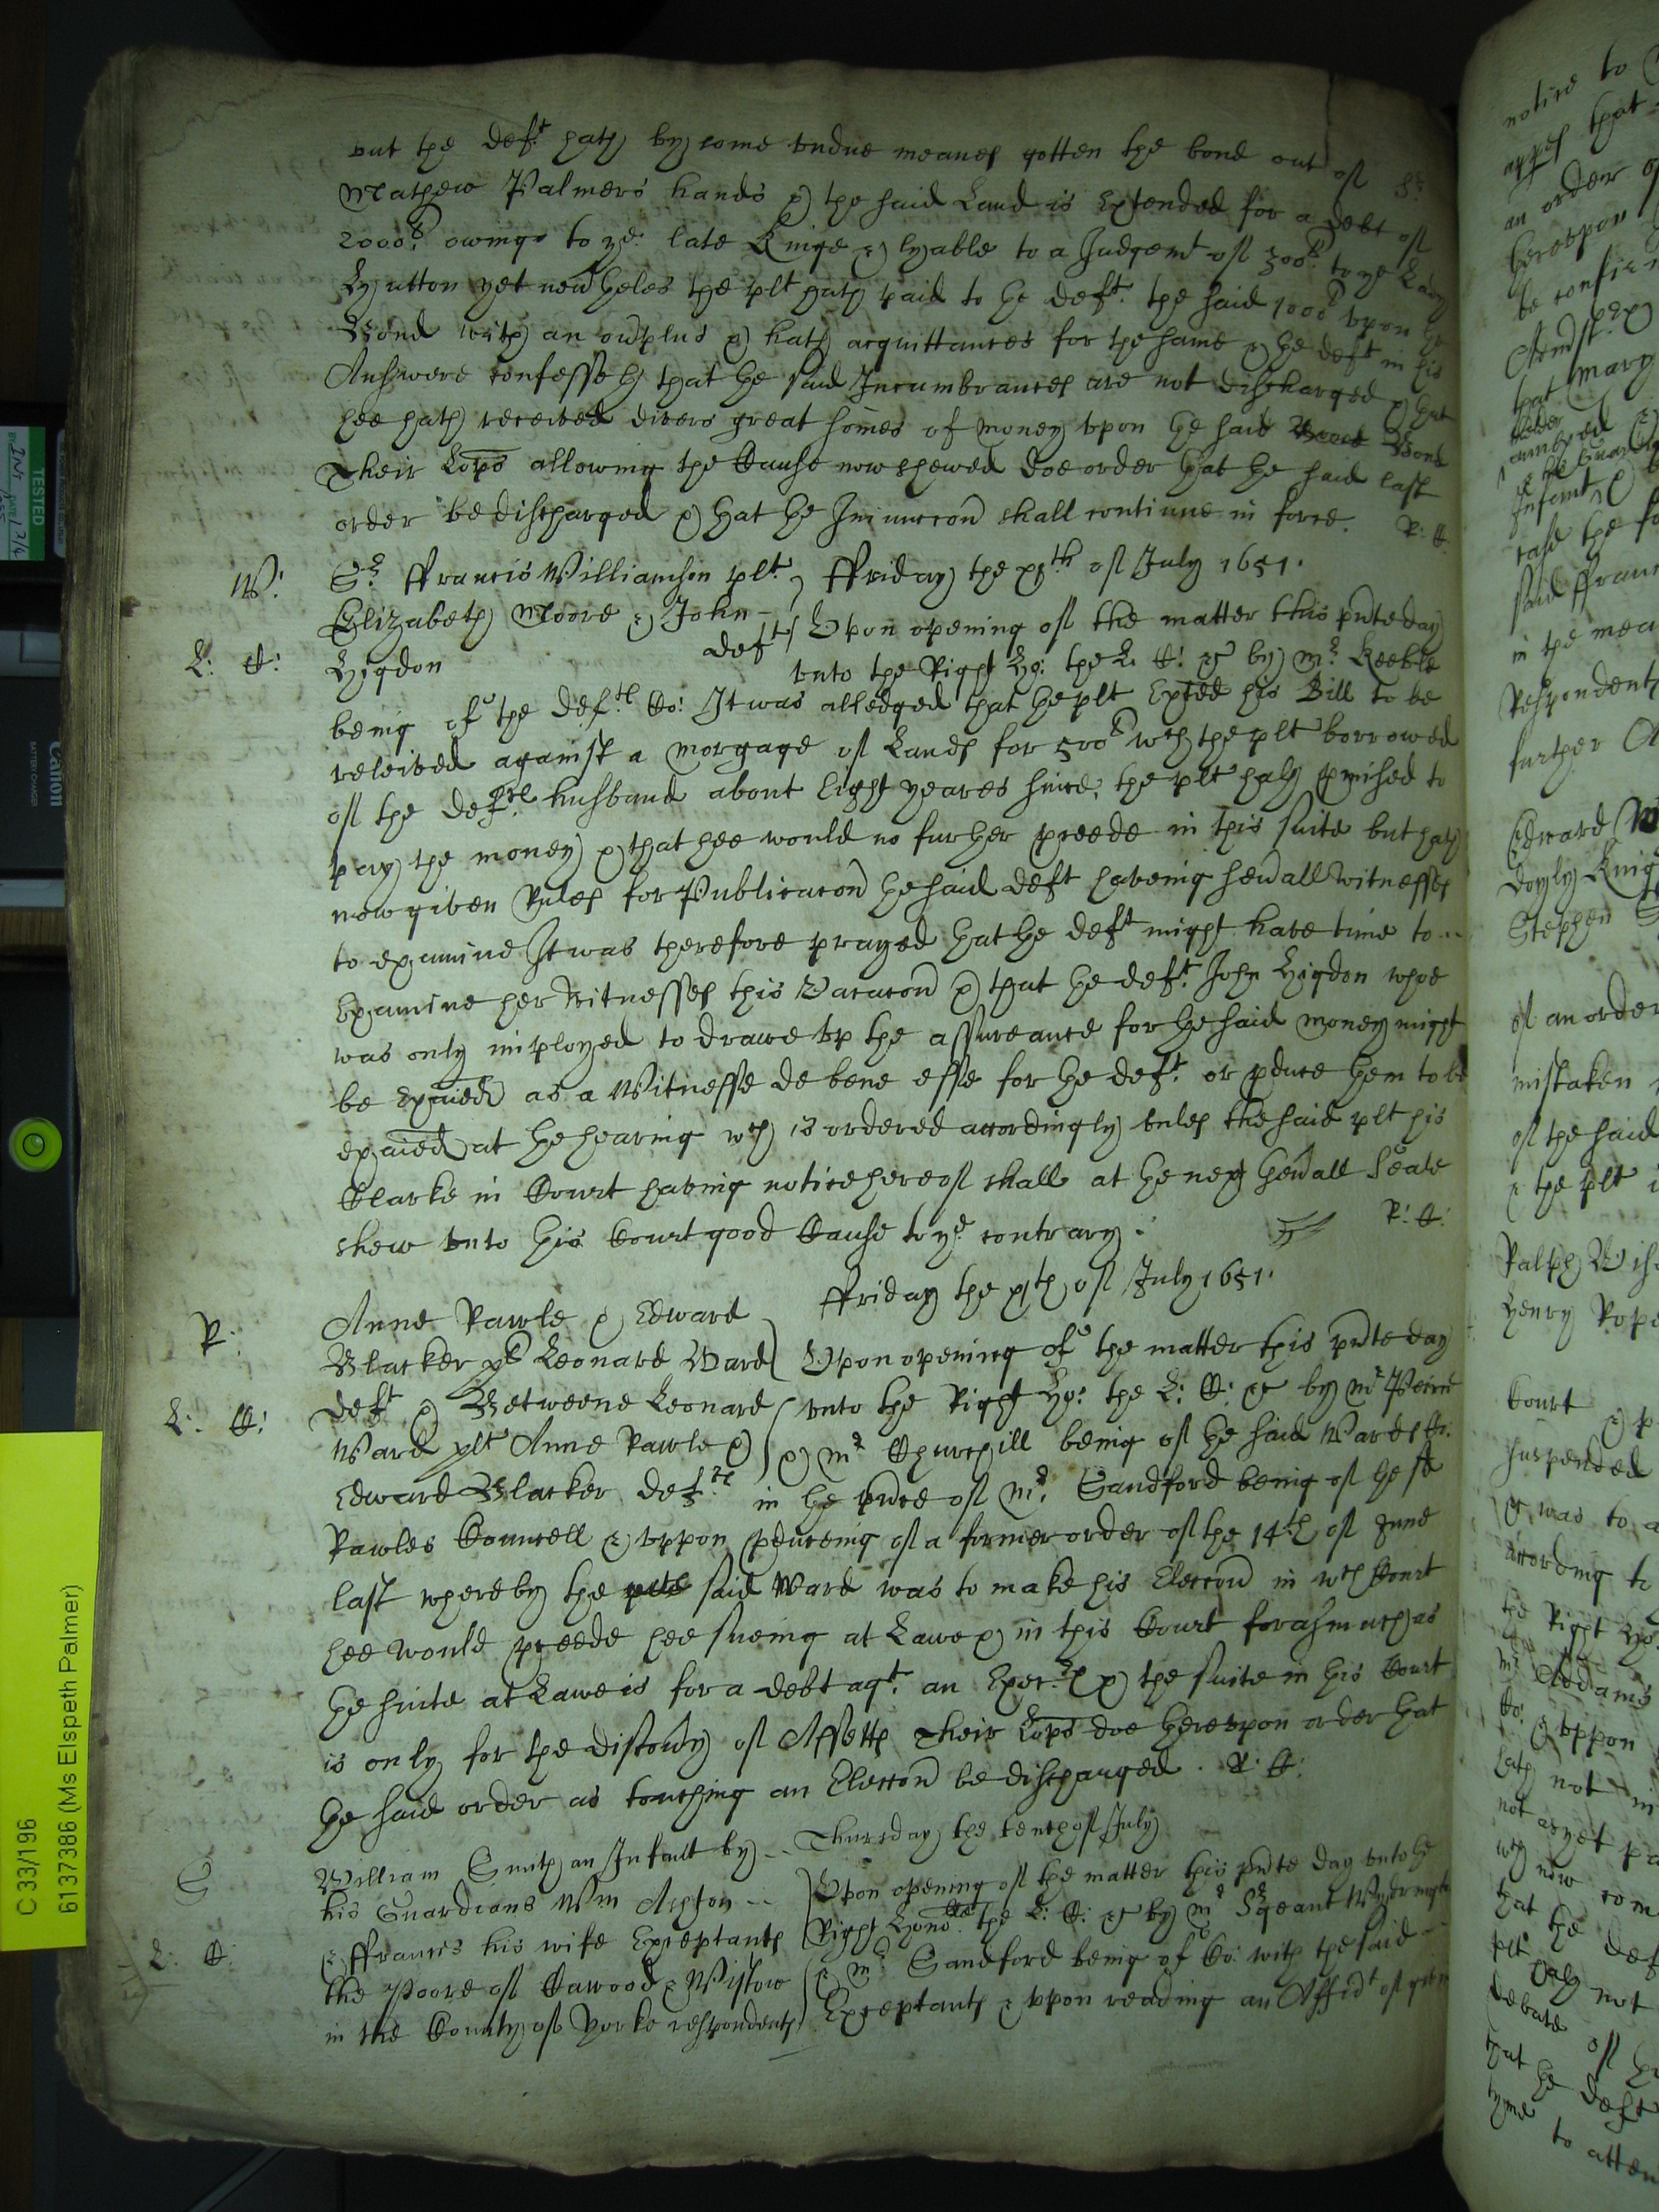 but the deft hath by some undue meanes gotten the bond out of Sr
Mathew Palmers hands & the said Land is Extended for a debt of
2000l. owinge to ye late Kinge & lyable to a Judgemt of 500l. to ye Lady
Hutton yet nevtheles the plt hath paid to the deft. the said 1000l upon the
Bond with an ovplus & hath acquittances for the same & the deft in his
Answere confesseth that the said Incumbrances are not discharged & that
hee hath received divers great somes of money upon the said Bond
Their Lopps allowing the Cause now shewed doe order that the said last
order be discharged & that the Iniunccon shall continue in force. R: C:
W: Sr ffrancis Williamson plt. ffriday the xjth of July 1651.
Elizabeth Moore & John Upon opening of the matter this pnte day
L: C: Higdon defts unto the Right Ho: the L. C: &c by Mr Keeble
being of the defts Co: It was alledged that the plt Exhted his Bill to be
releived against a Morgage of Lands for 500l wch the plt borrowed
of the defts husband about Eight yeares since, the plt hath pmised to
pay the money & that hee would no further pceede in this suite but hath
now given Rules for Publicacon the said deft haveing sevall Witnesses
to examine It was therefore prayed that the deft might have time to
Examine her Witnesses this Vacacon & that the deft. John Higdon whoe
was only imployed to drawe up the assureance for the said money might
be Exaied as a Witnesse de bene esse for the deft. or pduce them to be
exaied at the hearing wch is ordered accordingly unles the said plt his
Clarke in Court having notice hereof shall at the next genall Seale
shew unto this Court good Cause to ye contrary. R: C:
ffriday the xjth of July 1651.
R: Anne Rawle & Edward
Blacker plts Leonard Ward Upon opening of the matter this pnte day
L: C: deft & Betweene Leonard unto the Right Ho: the L: C: &c by Mr
Ward plt Anne Rawle & & Mr Churchill being of the said Wards Co:
Edward Blacker defts in the pnce of Mr. Sandford being of the sd
Rawles Councell & uppon pduceing of a former order of the 14th of June
last whereby the said Ward was to make his Eleccon in wch Court
hee would pceede hee sueing at Lawe & in this Court forasmuch as
the suite at Lawe is for a debt agt. an Execr & the suite in this Court
is only for the discovy of Assetts Their Lopps doe thereupon order that
the said order as touching an Eleccon be discharged. R: C:
Thursday the tenth of July
S William Smith an Infant by
his Guardians Wm Ashton Upon opening of the matter this pnte day unto the
& ffrances his wife Exceptants Right Honoble the L: C: &c by Mr Sgeant
L: C: the Poore of Cawood & Wistow & Mr Sandford being of Co: with the said
in the County of Yorke respondents Exceptants & uppon reading an Affidt of
TESTED
Canon
BATTERY CHARGER
C 33/196
6137386 (Ms Elspeth Palmer)
notice to
that
an order of
hereupon
be
that Mary
Infant
case the
said ffran
in the mea
Respondents
further
Edward
Doyly Knig
Stephen
of an order
mistaken
of the said
& the plt
Ralph
Henry Pope
Court
suspended
was to
according to
the Right Ho:
Mr Addams
Co: & uppon
hath not
not as yet
now com
that the def
plt hath not
debate of
that the deft
tyme to atten